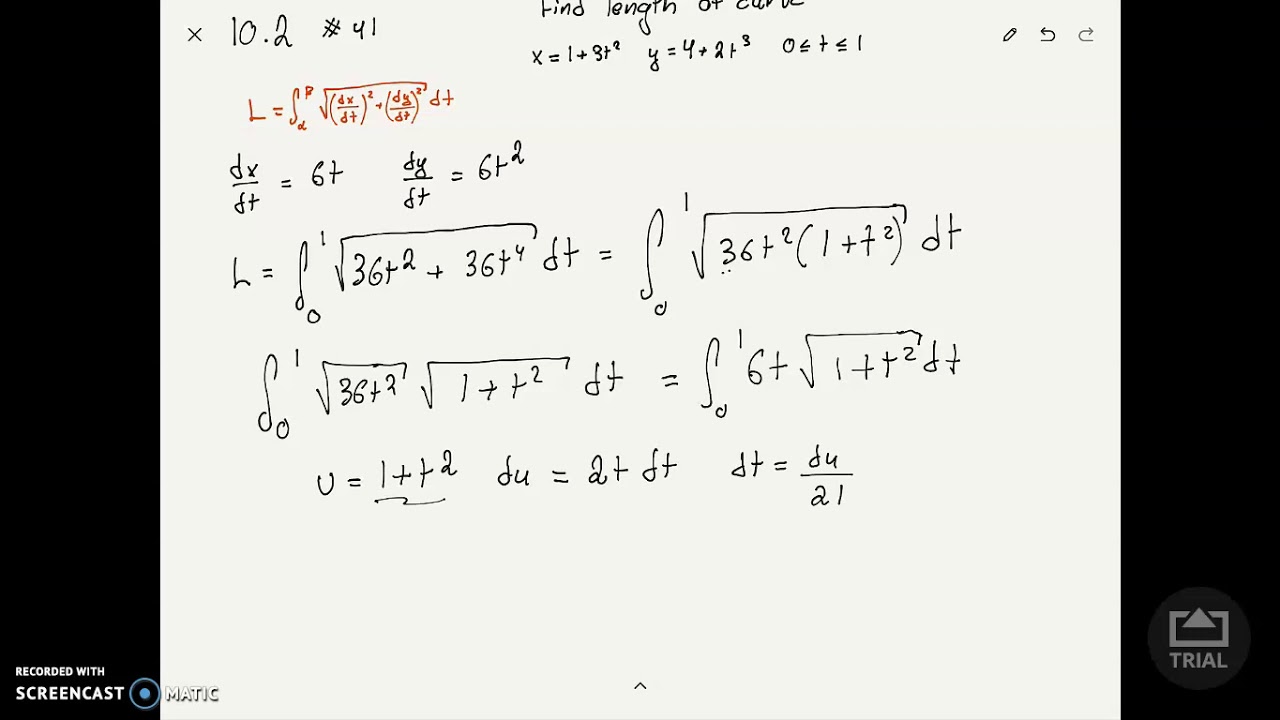 × 10.2 # 41
Find length of curve
x = 1 + 3t² y = 4 + 2t³ 0 ≤ t ≤ 1
L = ∫_α^β √((dx/dt)² + (dy/dt)²) dt
dx/dt = 6t dy/dt = 6t²
L = ∫_0^1 √(36t² + 36t⁴) dt = ∫_0^1 √(36t²(1+t²)) dt
∫_0^1 √(36t²) √(1+t²) dt = ∫_0^1 6t √(1+t²) dt
U = 1+t² du = 2t dt dt = du/21
RECORDED WITH
SCREENCAST MATIC
TRIAL